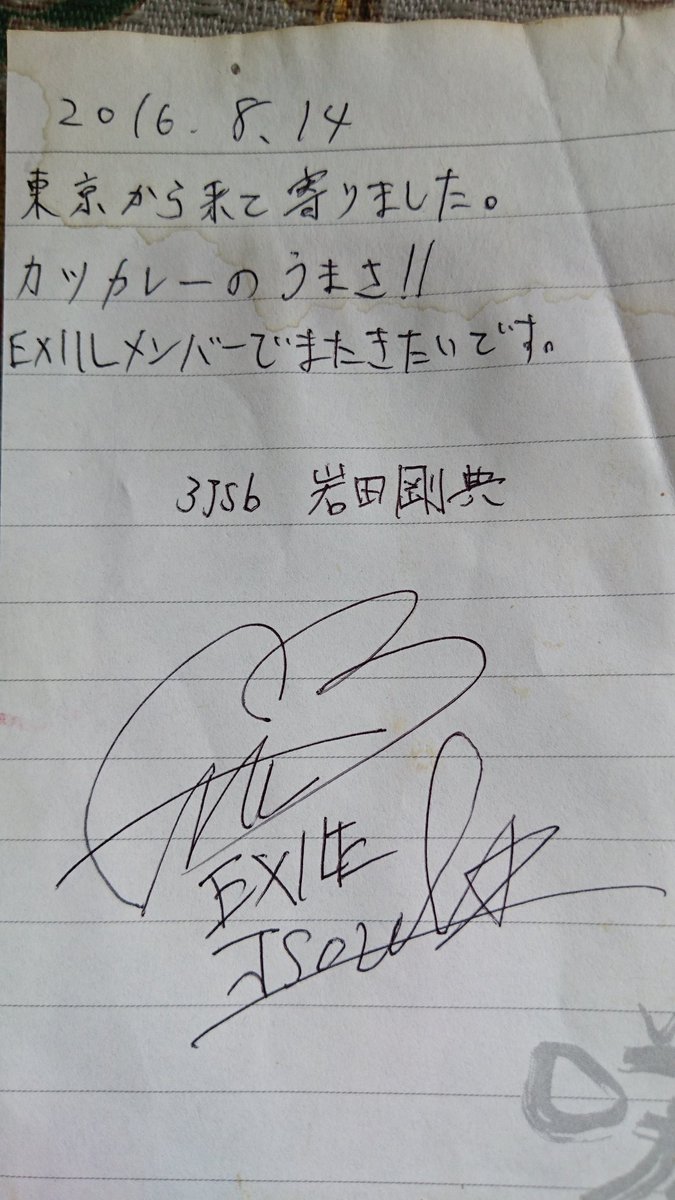 2016.8.14
東京から来て寄りました。
カツカレーのうまさ!!
EXILLメンバーでまたきたいです。
3JSb 岩田剛典
EXILE
JSOUL